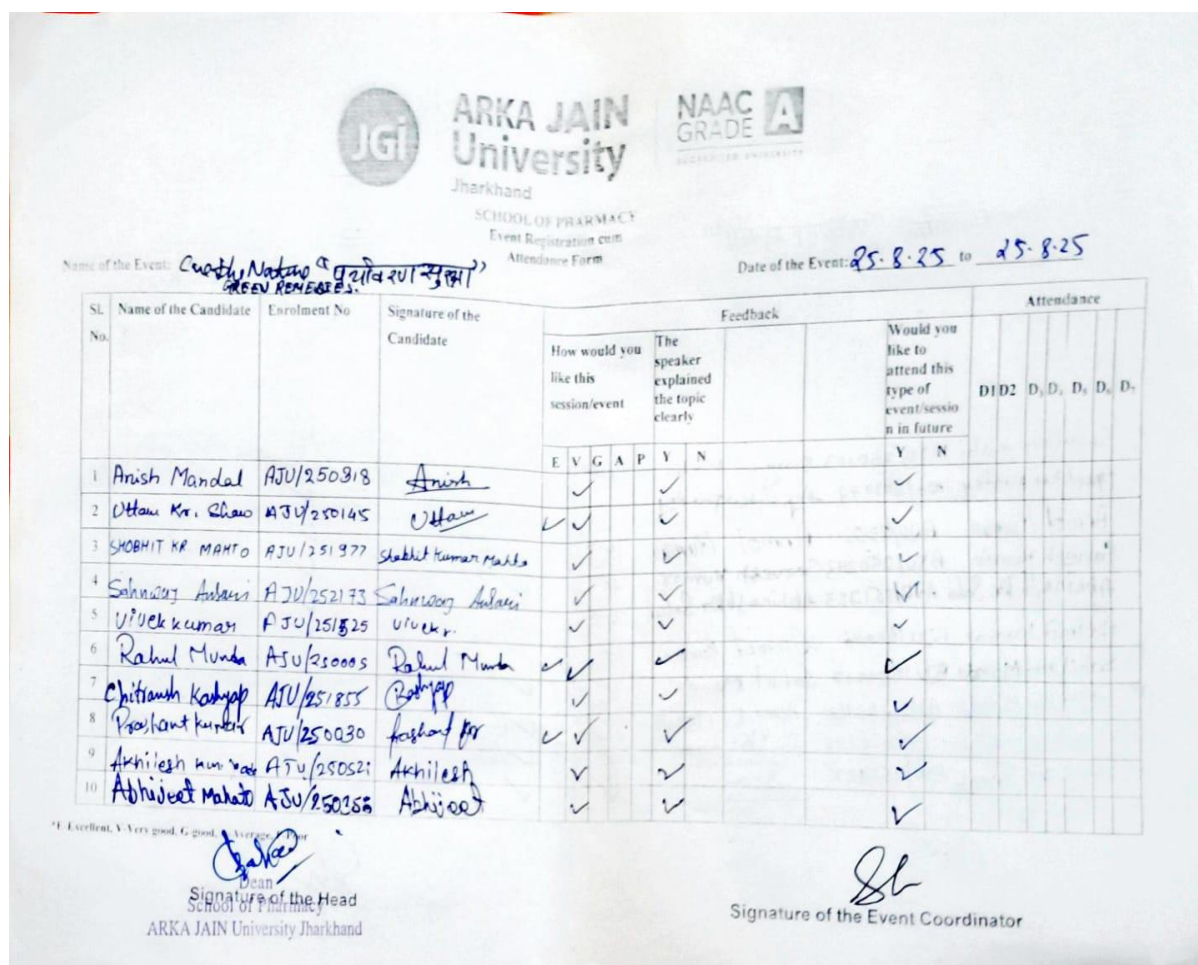 JGi
ARKA JAIN
University
Jharkhand
NAAC
GRADE A
ACCREDITED UNIVERSITY
SCHOOL OF PHARMACY
Event Registration cum
Attendance Form
Name of the Event: Nature "
GREEN REMEDIES.
Date of the Event: 25.8.25 to 25.8.25
Sl. No. Name of the Candidate Enrolment No Signature of the Candidate Feedback Attendance
How would you like this session/event The speaker explained the topic clearly Would you like to attend this type of event/session in future D1 D2 D3 D5 D6 D7
E V G A P Y N Y N
1 Anish Mandal AJU/250318 Anish ✓ ✓ ✓
2 Uttam Kr. Shaw AJU/250145 Uttam ✓ ✓ ✓ ✓
3 SHOBHIT KR MAHTO AJU/251977 Shobhit Kumar Mahto ✓ ✓ ✓
4 Sahnwaj Ansari AJU/252173 Sahnwaj Ansari ✓ ✓ ✓
5 Vivek kumar AJU/251525 Vivek ✓ ✓ ✓
6 Rahul Munda AJU/250005 Rahul Munda ✓ ✓ ✓ ✓
7 Chitransh Kashyap AJU/251855 ✓ ✓ ✓
8 Prashant kumar AJU/250030 ✓ ✓ ✓ ✓
9 Akhilesh AJU/250521 Akhilesh ✓ ✓ ✓
10 Abhijeet Mahato Abhijeet ✓ ✓ ✓
*E Excellent, V-Very good, G-good, Average, P-Poor
Dean
Signature of the Head
School of Pharmacy
ARKA JAIN University Jharkhand
Signature of the Event Coordinator